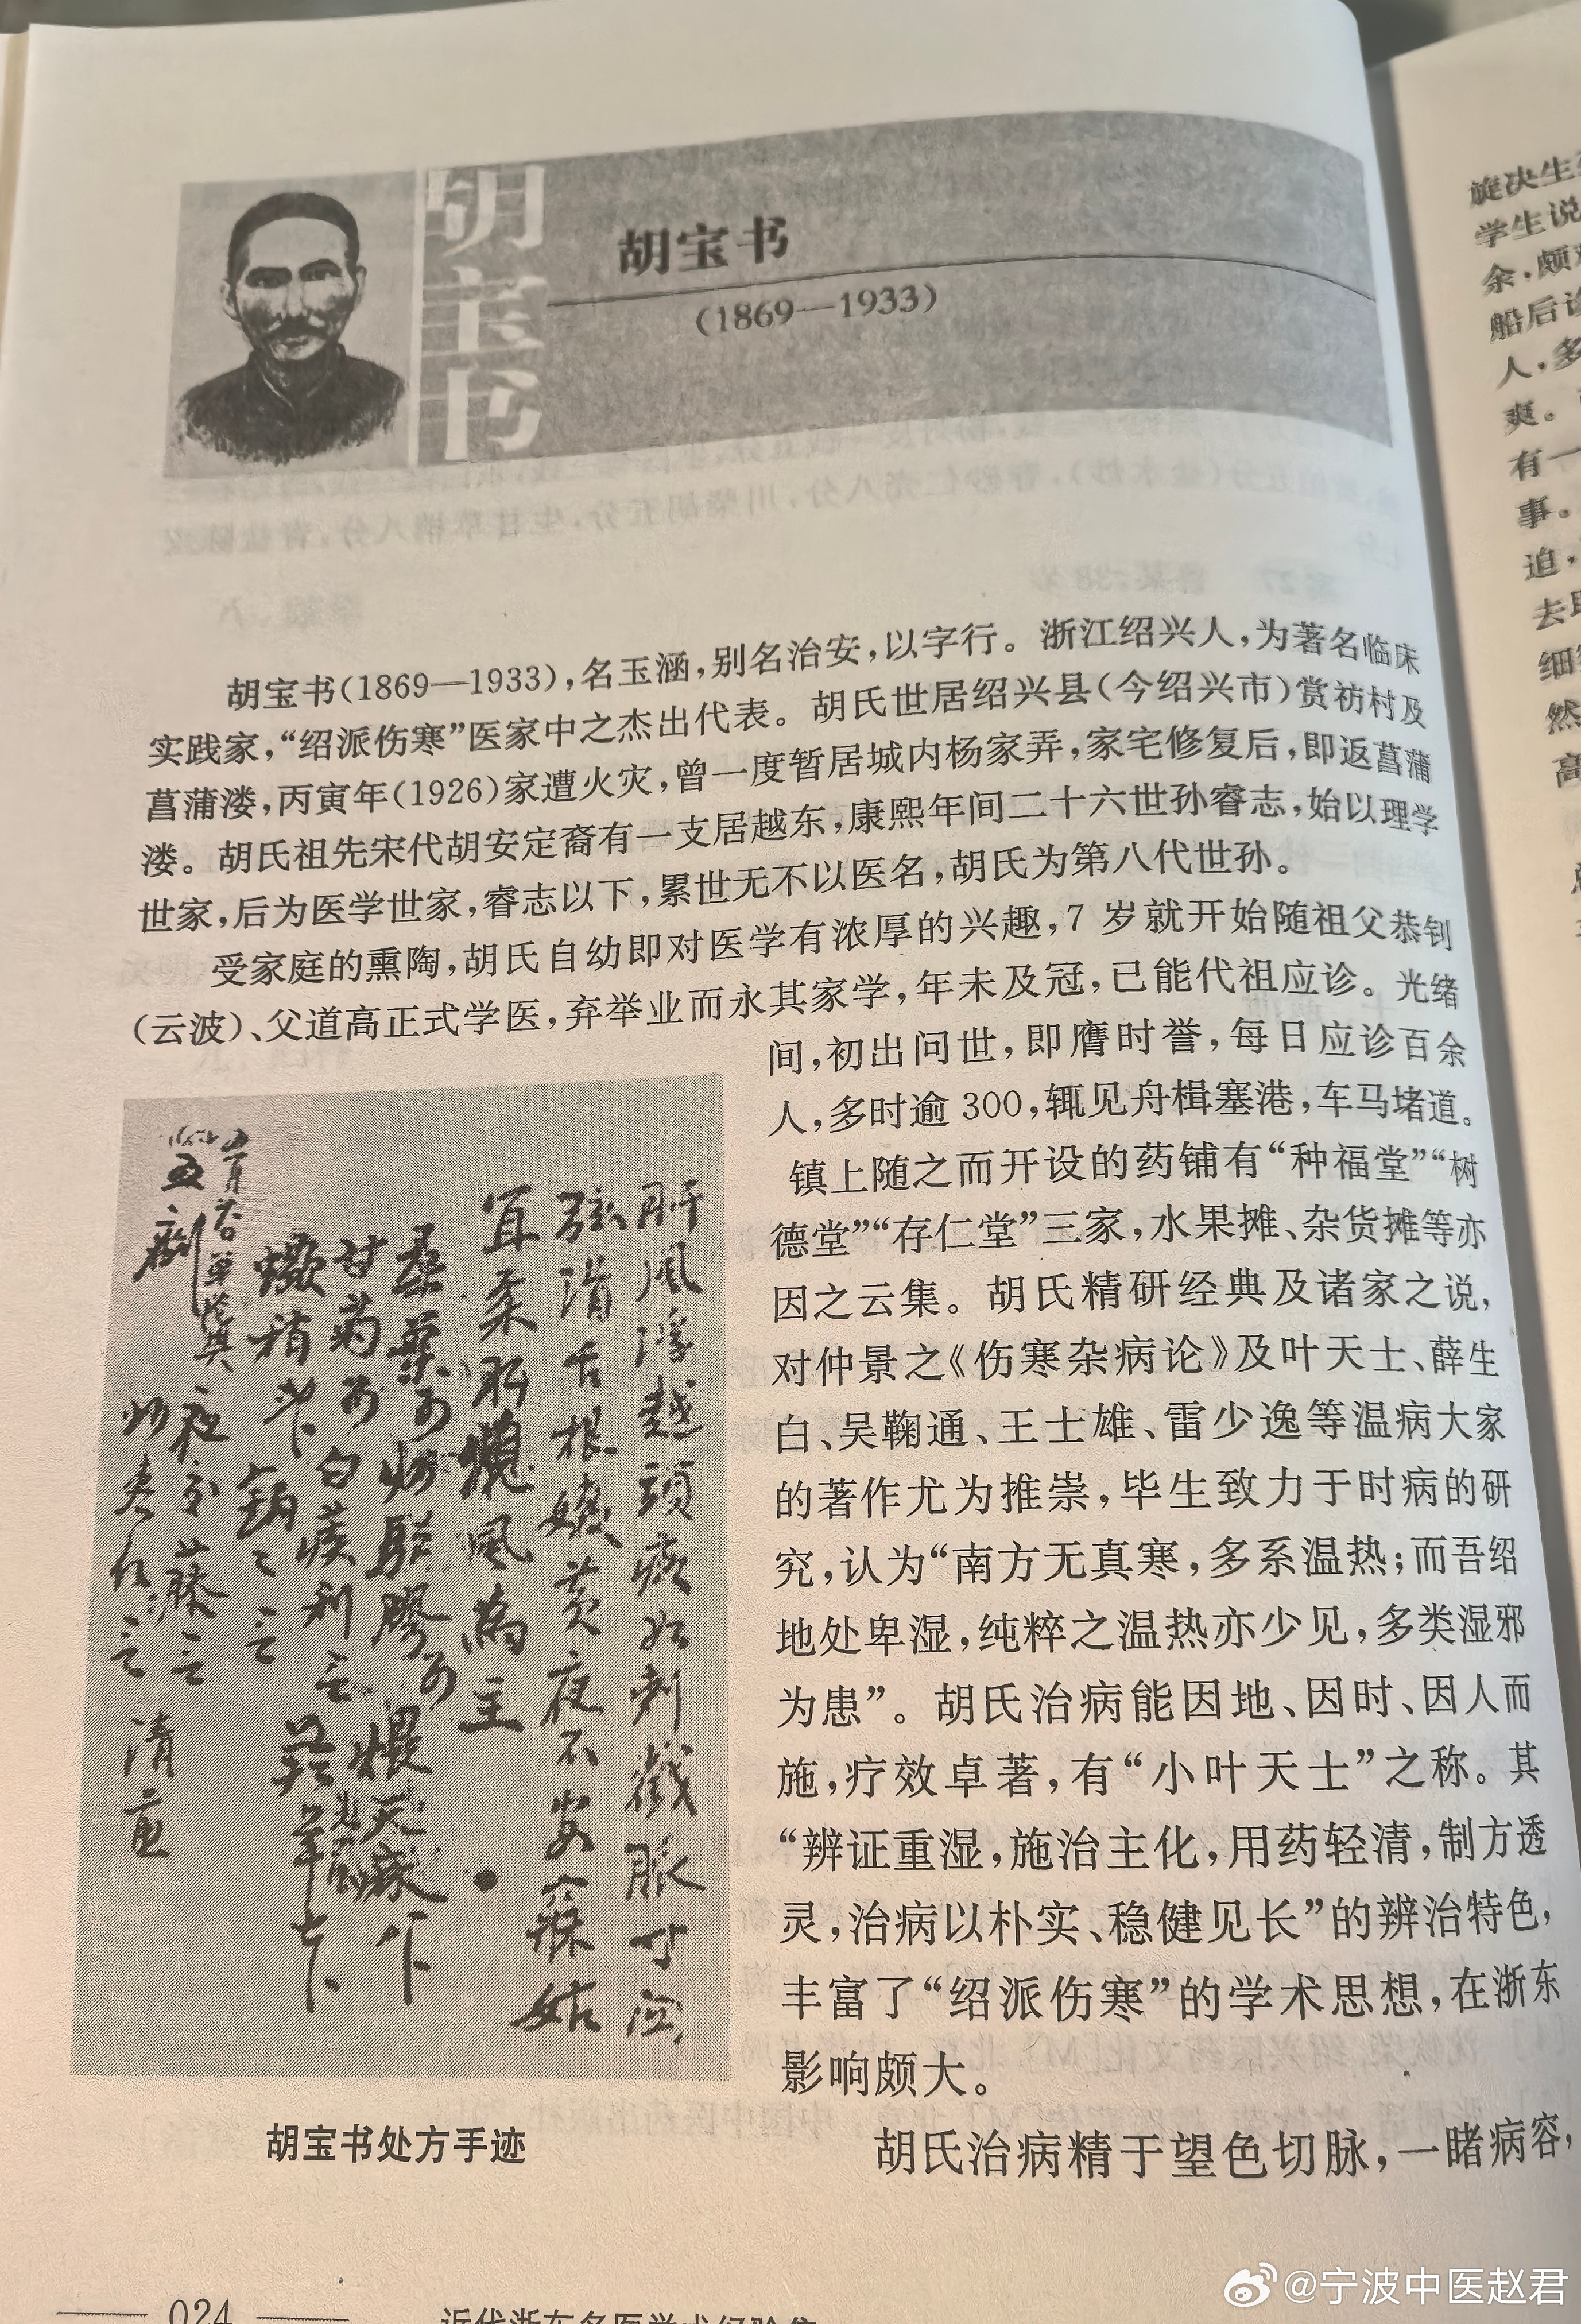 胡宝书
胡宝书
(1869—1933)
胡宝书(1869—1933),名玉涵,别名治安,以字行。浙江绍兴人,为著名临床
实践家,“绍派伤寒”医家中之杰出代表。胡氏世居绍兴县(今绍兴市)赏祊村及
菖蒲溇,丙寅年(1926)家遭火灾,曾一度暂居城内杨家弄,家宅修复后,即返菖蒲
溇。胡氏祖先宋代胡安定裔有一支居越东,康熙年间二十六世孙睿志,始以理学
世家,后为医学世家,睿志以下,累世无不以医名,胡氏为第八代世孙。
受家庭的熏陶,胡氏自幼即对医学有浓厚的兴趣,7 岁就开始随祖父恭钊
(云波)、父道高正式学医,弃举业而永其家学,年未及冠,已能代祖应诊。光绪
间,初出问世,即膺时誉,每日应诊百余
人,多时逾 300,辄见舟楫塞港,车马堵道。
镇上随之而开设的药铺有“种福堂”“树
德堂”“存仁堂”三家,水果摊、杂货摊等亦
因之云集。胡氏精研经典及诸家之说,
对仲景之《伤寒杂病论》及叶天士、薛生
白、吴鞠通、王士雄、雷少逸等温病大家
的著作尤为推崇,毕生致力于时病的研
究,认为“南方无真寒,多系温热;而吾绍
地处卑湿,纯粹之温热亦少见,多类湿邪
为患”。胡氏治病能因地、因时、因人而
施,疗效卓著,有“小叶天士”之称。其
“辨证重湿,施治主化,用药轻清,制方透
灵,治病以朴实、稳健见长”的辨治特色,
丰富了“绍派伤寒”的学术思想,在浙东
影响颇大。
胡氏治病精于望色切脉,一睹病容,
肝风浮越頭痰如刺戳脈寸
弦滑舌根嫩黄夜不安寐姑
宜柔肝熄風為主
桑葉炒驅膠煨天麻
甘菊白蒺利
蠍稍
夜交藤三
炒枣仁三 清煎
五劑
胡宝书处方手迹
024
近代浙东名医学术经验集
旋决生
学生说
余,颇
船后诊
人,多
爽。
有一
事。
迫,
去
细
然
高
@宁波中医赵君